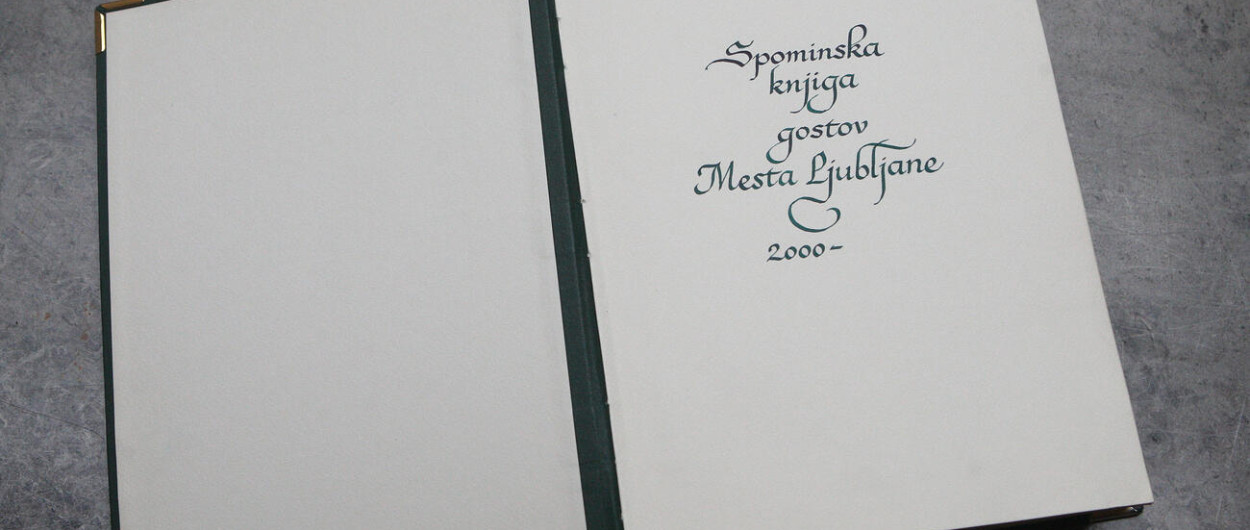 Spominska
knjiga
gostov
Mesta Ljubljane
2000-